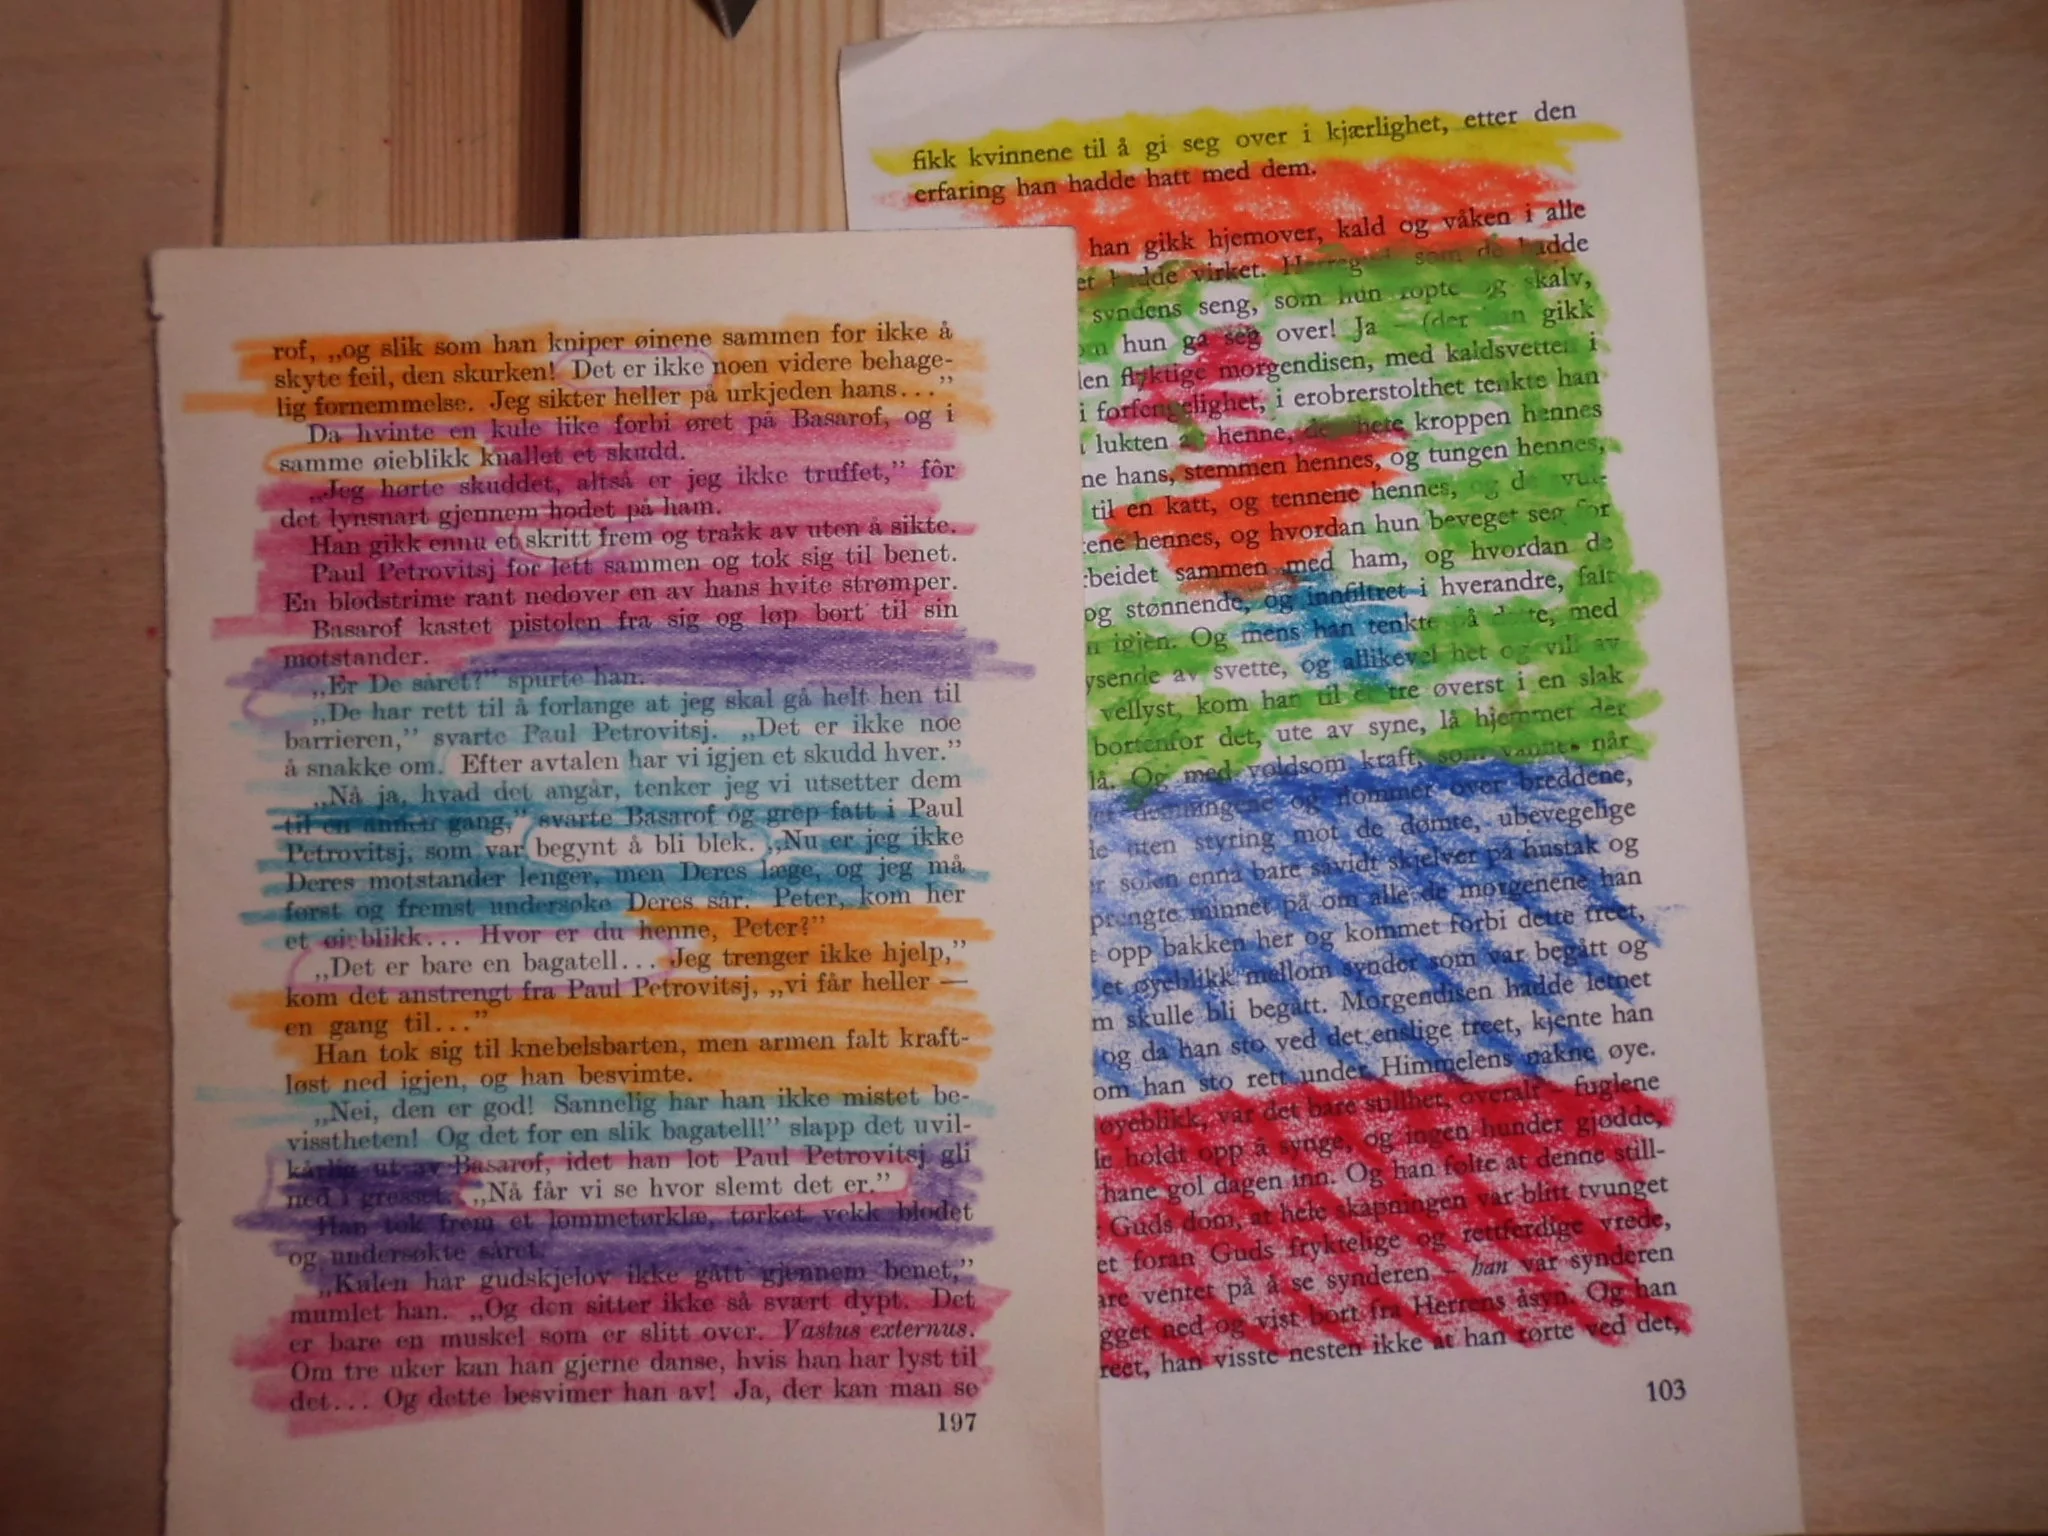 rof, „og slik som han kniper øinene sammen for ikke å
skyte feil, den skurken! Det er ikke noen videre behage-
lig fornemmelse. Jeg sikter heller på urkjeden hans...”
Da hvinte en kule like forbi øret på Basarof, og i
samme øieblikk knallet et skudd.
„Jeg hørte skuddet, altså er jeg ikke truffet,” fôr
det lynsnart gjennem hodet på ham.
Han gikk ennu et skritt frem og trakk av uten å sikte.
Paul Petrovitsj for lett sammen og tok sig til benet.
En blodstrime rant nedover en av hans hvite strømper.
Basarof kastet pistolen fra sig og løp bort til sin
motstander.
„Er De såret?” spurte han.
„De har rett til å forlange at jeg skal gå helt hen til
barrieren,” svarte Paul Petrovitsj. „Det er ikke noe
å snakke om. Efter avtalen har vi igjen et skudd hver.”
„Nå ja, hvad det angår, tenker jeg vi utsetter dem
til en annen gang,” svarte Basarof og grep fatt i Paul
Petrovitsj, som var begynt å bli blek. „Nu er jeg ikke
Deres motstander lenger, men Deres læge, og jeg må
først og fremst undersøke Deres sår. Peter, kom her
et øieblikk... Hvor er du henne, Peter?”
„Det er bare en bagatell... Jeg trenger ikke hjelp,”
kom det anstrengt fra Paul Petrovitsj, „vi får heller —
en gang til...”
Han tok sig til knebelsbarten, men armen falt kraft-
løst ned igjen, og han besvimte.
„Nei, den er god! Sannelig har han ikke mistet be-
visstheten! Og det for en slik bagatell!” slapp det uvil-
kårlig ut av Basarof, idet han lot Paul Petrovitsj gli
ned i gresset. „Nå får vi se hvor slemt det er.”
Han tok frem et lommetørklæ, tørket vekk blodet
og undersøkte såret.
„Kulen har gudskjelov ikke gått gjennem benet,”
mumlet han. „Og den sitter ikke så svært dypt. Det
er bare en muskel som er slitt over. Vastus externus.
Om tre uker kan han gjerne danse, hvis han har lyst til
det... Og dette besvimer han av! Ja, der kan man se
197
fikk kvinnene til å gi seg over i kjærlighet, etter den
erfaring han hadde hatt med dem.
han gikk hjemover, kald og våken i alle
hadde virket. som de hadde
syndens seng, som hun ropte og skalv,
hun ga seg over! Ja – (der han gikk
flyktige morgendisen, med kaldsvetten i
i forfengelighet, i erobrerstolthet tenkte han
lukten av henne, den hete kroppen hennes
hans, stemmen hennes, og tungen hennes,
til en katt, og tennene hennes, og de
hennes, og hvordan hun beveget seg for
sammen med ham, og hvordan de
og stønnende, og innfiltret i hverandre, falt
igjen. Og mens han tenkte på dette, med
av svette, og allikevel het og vill av
vellyst, kom han til et tre øverst i en slak
bortenfor det, ute av syne, lå hjemmet der
lå. Og med voldsom kraft, som vannet når
demningene og flommer over breddene,
uten styring mot de dømte, ubevegelige
solen enna bare såvidt skjelver på hustak og
minnet på om alle de morgenene han
opp bakken her og kommet forbi dette treet,
et øyeblikk mellom synder som var begått og
skulle bli begått. Morgendisen hadde letnet
og da han sto ved det enslige treet, kjente han
om han sto rett under Himmelens nakne øye.
øyeblikk, var det bare stillhet, overalt – fuglene
holdt opp å synge, og ingen hunder gjødde,
hane gol dagen inn. Og han følte at denne still-
Guds dom, at hele skapningen var blitt tvunget
foran Guds fryktelige og rettferdige vrede,
ventet på å se synderen – han var synderen
ned og vist bort fra Herrens åsyn. Og han
han visste nesten ikke at han rørte ved det,
103